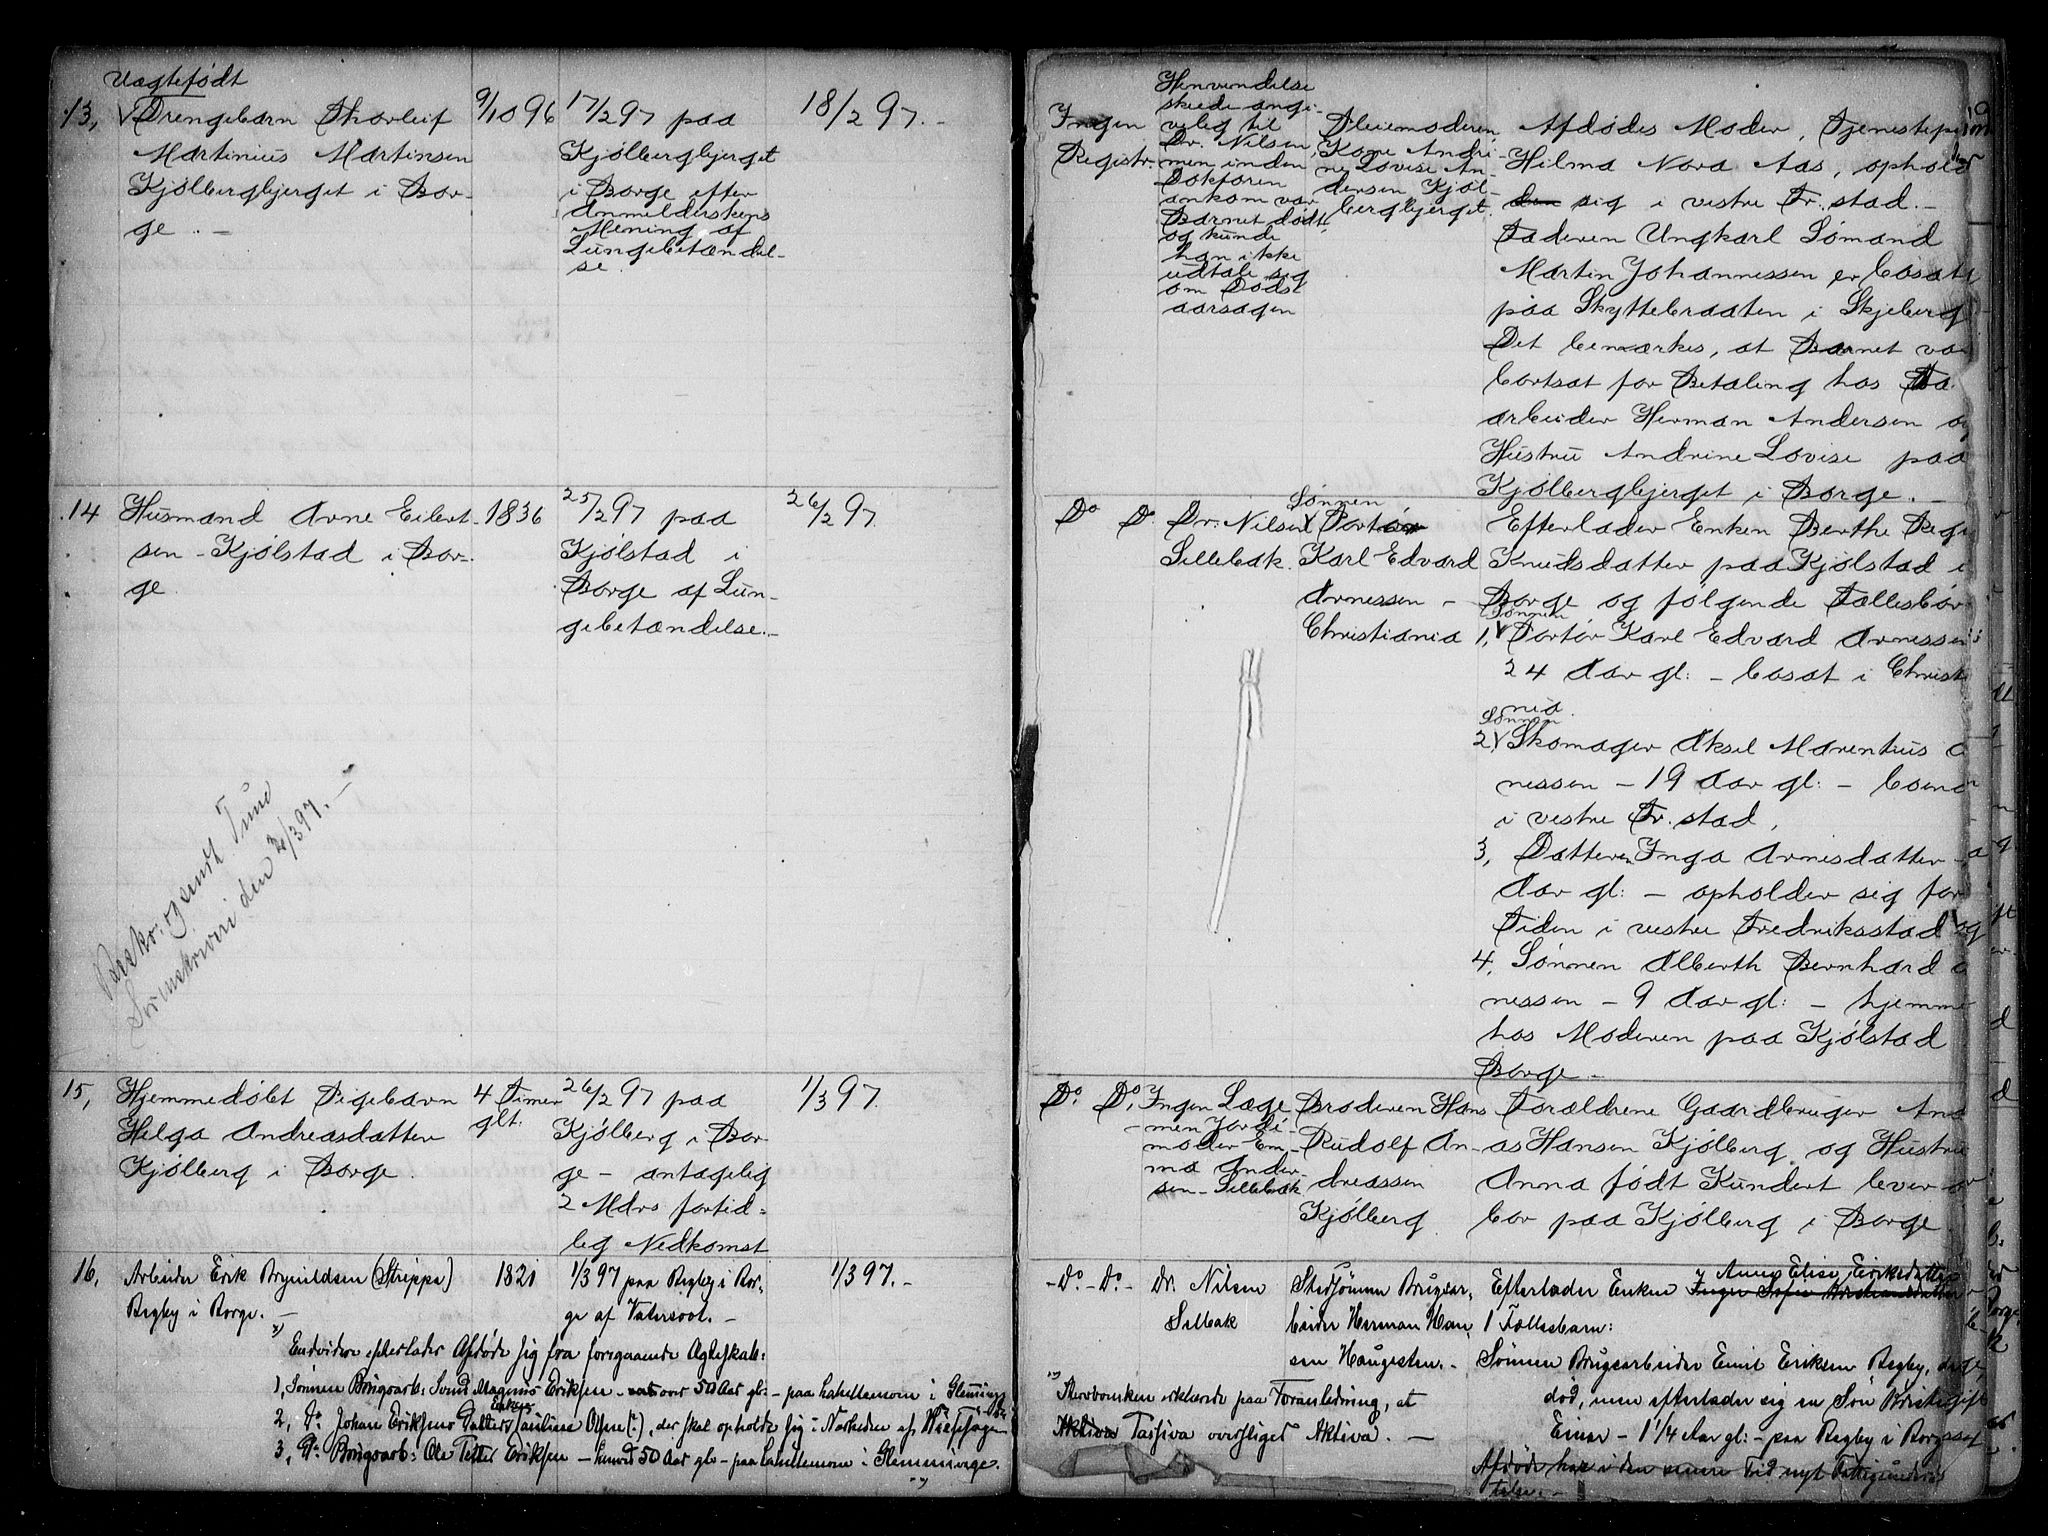 Uægtefødt
13, Drengebarn Thorleif
Martinius Martinsen
Kjølbergbjerget i Bor-
ge. -
9/10 96
17/2 97 paa
Kjølbergbjerget
i Borge efter
Anmelderskens
Mening af
Lungebetændel-
se.
18/2 97. -
Ingen
Registr.
Henvendelse
skede angi-
velig til
Dr. Nilsen,
men inden
Doktoren
ankom var
Barnet dødt,
og kunde
han ikke
udtale sig
om Døds-
aarsagen
Pleiemoderen
Kone Andri-
ne Lovise An-
dersen Kjøl-
bergbjerget.
Afdødes Moder, Tjenestepi
Hilma Nora Aas, ophold
den sig i vestre Fr.stad. -
Faderen Ungkarl Sømand
Martin Johannessen er bosat
paa Skyttebraaten i Skjeberg
Det bemærkes, at Barnet va
bortsat for Betaling hos
arbeider Herman Andersen o
Hustru Andrine Lovise paa
Kjølbergbjerget i Borge. -
14 Husmand Arne Eilert-
sen - Kjølstad i Bor-
ge.
1836
25/2 97 paa
Kjølstad i
Borge af Lun-
gebetændelse. -
26/2 97.
Beskr. og sendt Tune
Sorenskriveri den /3 97. -
Do Do
Dr. Nilsen
Sellebak.
Sønnen
Portør
Karl Edvard
Arnessen -
Christiania
Efterlader Enken Berthe Regi
Knudsdatter paa Kjølstad i
Borge og følgende Fællesbør
Sønnen
1, Portør Karl Edvard Arnessen
24 Aar gl: - bosat i Christ
nia.
Sønnen
2, Skomager Aksel Marentius A
nessen - 19 Aar gl: - boend
i vestre Fr.stad,
3, Datteren Inga Arnesdatter -
Aar gl: - opholder sig for
Tiden i vestre Fredriksstad og
4, Sønnen Alberth Bernhard A
nessen - 9 Aar gl: - hjemme
hos Moderen paa Kjølstad
Borge. -
15, Hjemmedøbt Pigebarn
Helga Andreasdatter
Kjølberg i Borge.
4 Timer
glt.
26/2 97 paa
Kjølberg i Bor-
ge - antagelig
2 Mdrs fortid=
lig Nedkomst
1/3 97.
Do Do,
Ingen Læge
- men Jordi-
moder Em-
ma Ander-
sen - Sellebak
Broderen Hans
Rudolf An-
dreassen
Kjølberg.
Forældrene Gaardbruger And
as Hansen Kjølberg og Hustru
Anna født Kundert lever o
bor paa Kjølberg i Borge.
16, Arbeider Erik Brynildsen (Streppe)
Begby i Borge. -
1821
1/3 97 paa Begby i Bor-
ge af Vatersoot. -
1/3 97. -
x) Endvidere efterlader Afdøde sig fra foregaaende Ægteskab:
1, Sønnen Brugsarb: Svend Magnus Eriksen - over 50 Aar gl: - paa Lahellemoen i Glemminge
Enken
2, Do Johan Eriksens Pauline Olsen (?), der skal opholde sig i Nærheden af
3, Do Brugsarb: Ole Petter Eriksen - henved 50 Aar gl: - paa Lahellemoen i Glemminge.
- Do - Do -
Dr. Nilsen
Selbak
Stedsønnen Brugsar-
beider Herman Han-
sen Haugesten. -
Efterlader Enken Inger Sofie
Anne Elise Eriksdatter
1 Fællesbarn:
Sønnen Brugsarbeider Emil Eriksen Begby,
død, men efterlader sig en Søn
Einar - 1 1/4 Aar gl: - paa Begby i Borge
Afdøde har i den senere Tid nyt
x) Stervboenken erklærede paa Foranledning, at
Aktiva Passiva overstiger Aktiva. -